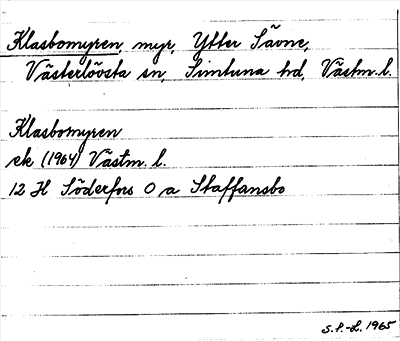 Klasbomyren, myr, Ytter Sävne,
Västerlövsta sn, Simtuna hd, Västm. l.
Klasbomyren
ek (1964) Västm. l.
12 H Söderfors O a Staffansbo
S.P.-L. 1965